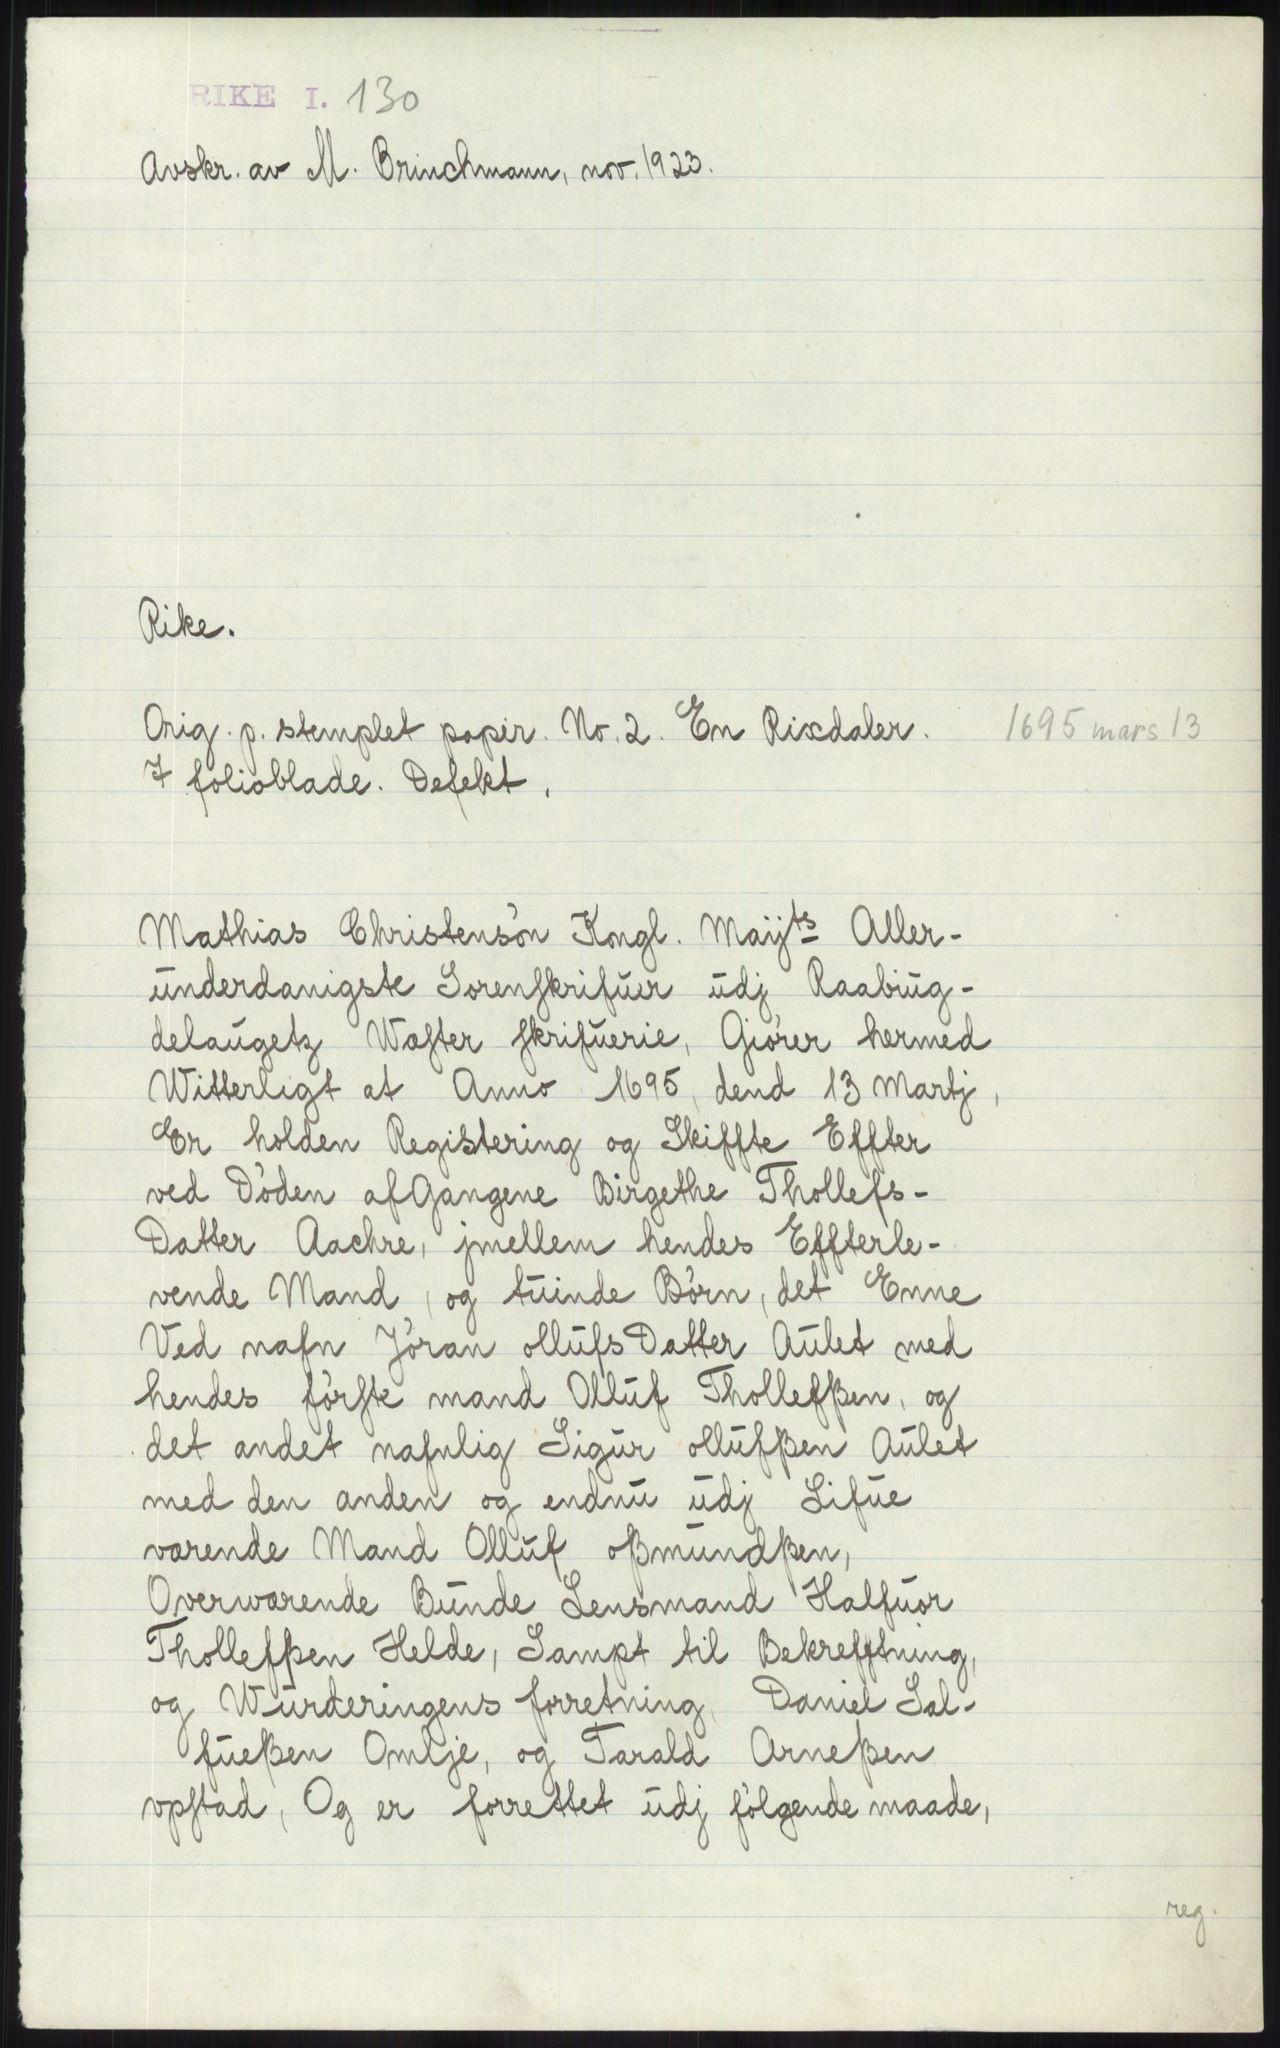 RIKE I. 130
Avskr. av M. Brinchmann, nov. 1923.
Rike.
Orig. p. stemplet papir. No. 2. En Rixdaler. 1695 mars 13
7 folioblade. Defekt.
Mathias Christensön Kongl. Maÿts Aller-
underdanigste Sorenskrifuer udj Raabiug-
delaugetz Wæster skrifuerie, Giörer hermed
Witterligt at Anno 1695, dend 13 Martj,
Er holden Registering og Skiffte Effter
ved Döden afGangene Birgethe Thollefs-
Datter Aachre, jmellem hendes Effterle-
vende Mand, og tuinde Börn, det Enne
Ved nafn Jöran ollufsDatter Aulet med
hendes förste mand Olluf Thollefßen, og
det andet nafnlig Sigur ollufßen Aulet
med den anden og endnu udj Lifue
værende Mand Olluf oßmundßen,
Overwærende Bunde Lensmand Halfuor
Thollefßen Helde, Sampt til Bekrefftning,
og Wurderingens forretning, Daniel Sal-
fueßen Omlje, og Tarald Arneßen
vpstad, Og er forrettet udj fölgende maade,
reg.